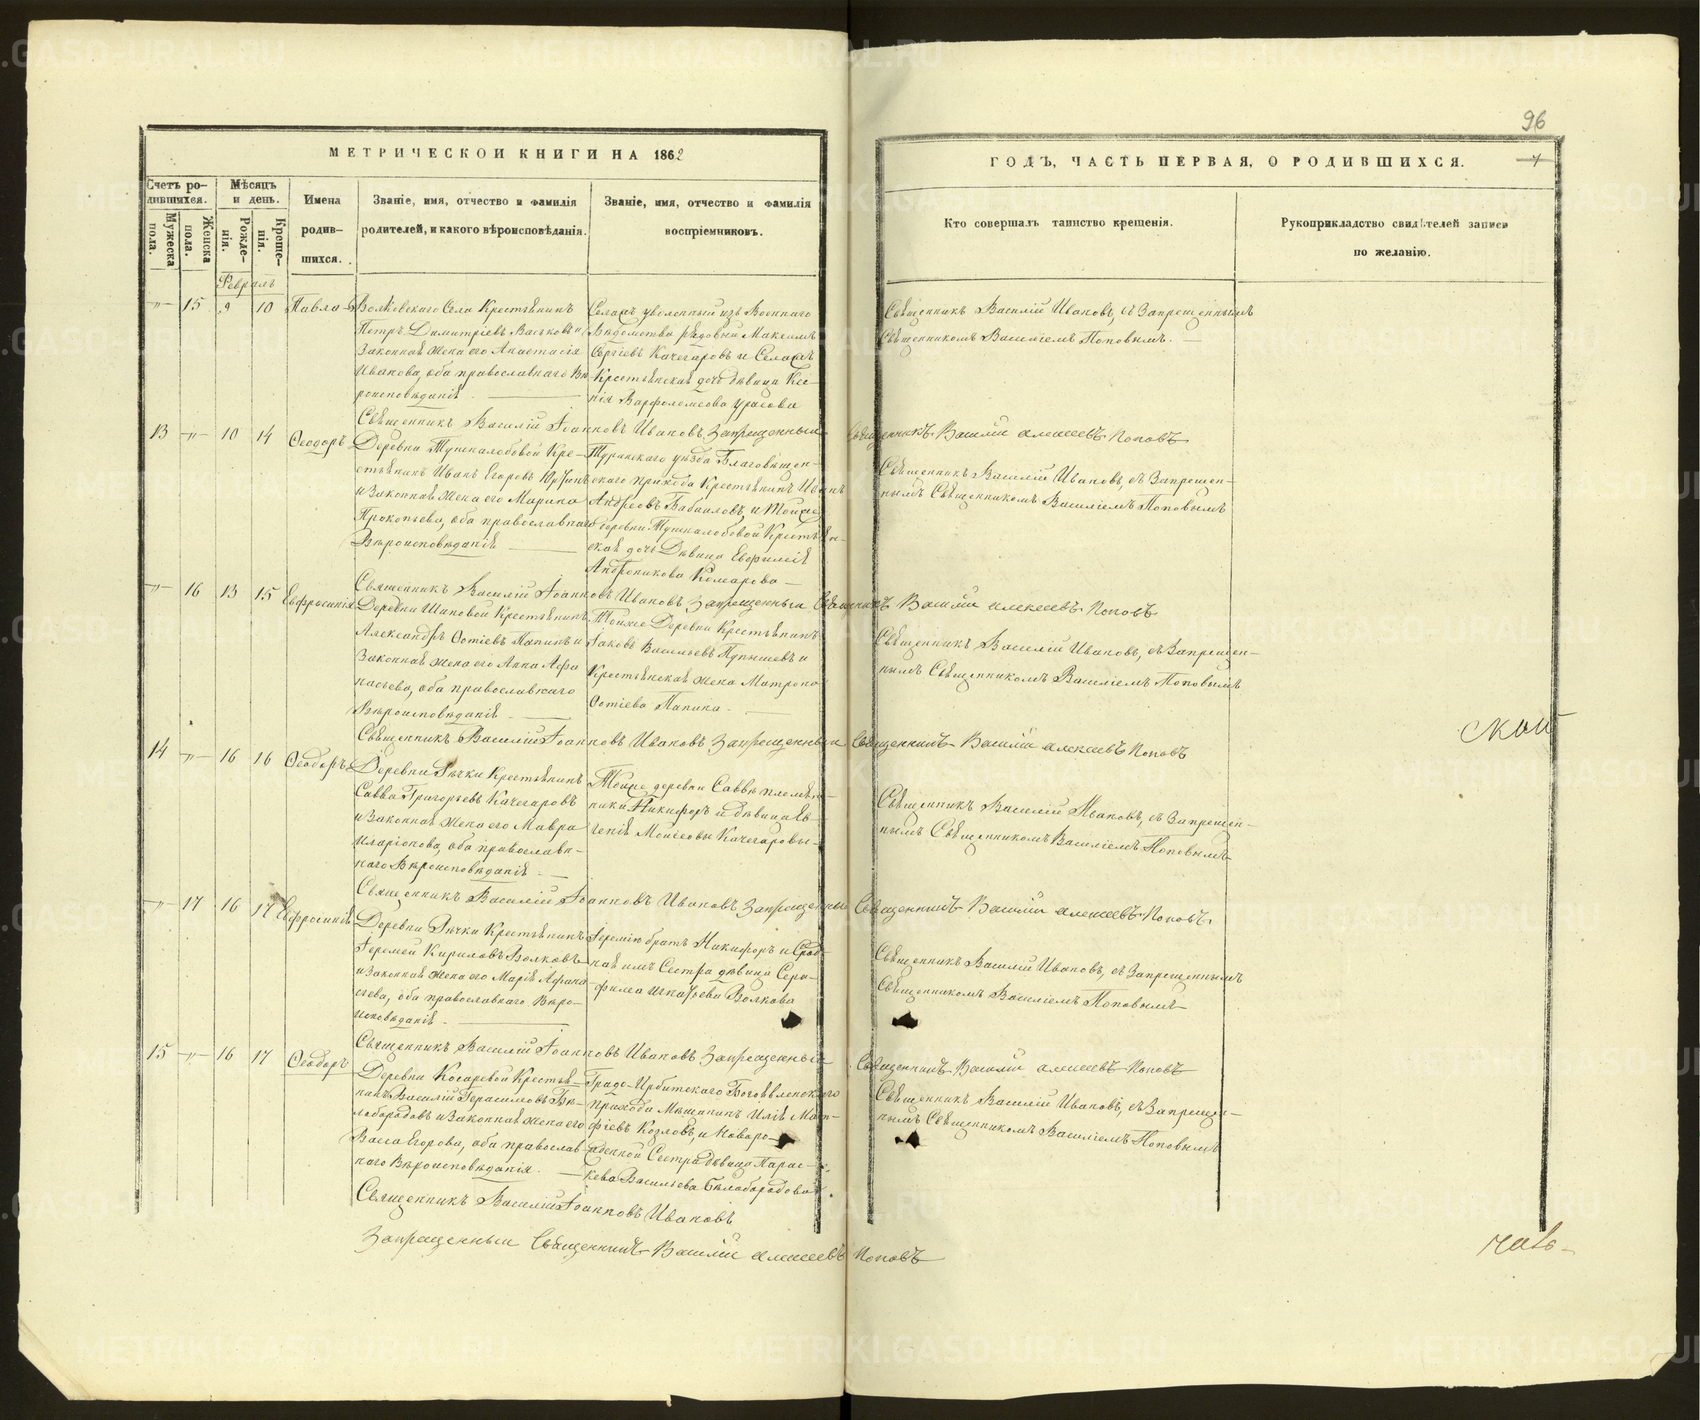 96
МЕТРИЧЕСКОЙ КНИГИ НА 1862
ГОДЪ, ЧАСТЬ ПЕРВАЯ, О РОДИВШИХСЯ.
Счетъ ро-
дившихся.
Мужеска пола.
Женска пола.
Мѣсяцъ
и день.
Рожде-
нія.
Креще-
нія.
Имена
родив-
шихся.
Званіе, имя, отчество и фамилія
родителей, и какого вѣроисповѣданія.
Званіе, имя, отчество и фамилія
воспріемниковъ.
Кто совершалъ таинство крещенія.
Рукоприкладство свидѣтелей записи
по желанію.
Февраль
15 9 10 Павла
Волковскаго Села Крестьянинъ
Петръ Димитріевъ Васьковъ и
Законная жена его Анастасія
Иванова, оба православнаго Вѣ
роисповѣданія
Селахъ уволенный изъ Военнаго
Вѣдомства рядовой Максимъ
Сергіевъ Качегаровъ и Селахъ
Крестьянская дочь дѣвица Ксе-
нія Варфоломеева Урасова
Священникъ Василій Ивановъ, съ Запрещеннымъ
Священникомъ Василіемъ Поповымъ.
Священникъ Василій Іоанновъ Ивановъ Запрещенный Священникъ Василій Алексеевъ Поповъ
13 10 14 Ѳеодоръ
Деревни Тушналобовой Кре-
стьянинъ Иванъ Егоровъ
и Законная жена его Марина
Прокопьева, оба православнаго
Вѣроисповѣданія
Туринскаго уѣзда Благовѣщен-
скаго прихода Крестьянинъ Иванъ
Андреевъ Бабаиловъ, и Тойже
деревни Тушналобовой Крестьян-
ская дочь Дѣвица Евфимія
Андроникова Комарова
Священникъ Василій Ивановъ, съ Запрещен-
нымъ Священникомъ Василіемъ Поповымъ
Священникъ Василій Іоанновъ Ивановъ Запрещенный Священникъ Василій Алексеевъ Поповъ
16 13 15 Евфросинія
Деревни Шиповой Крестьянинъ
Александръ Ѳотіевъ Папинъ и
Законная жена его Анна Афа
насьева, оба православнаго
Вѣроисповѣданія
Тойже Деревни Крестьянинъ
Іаковъ Васильевъ Пупышевъ и
Крестьянская жена Матрона
Ѳотіева Папина
Священникъ Василій Ивановъ, съ Запрещен-
нымъ Священникомъ Василіемъ Поповымъ
Священникъ Василій Іоанновъ Ивановъ Запрещенный Священникъ Василій Алексеевъ Поповъ
ской
14 16 16 Ѳеодоръ
Деревни Рѣчки Крестьянинъ
Савва Григорьевъ Качегаровъ
и Законная жена его Мавра
Иларіонова, оба православн-
наго Вѣроисповѣданія
Тойже деревни Саввы племян-
ники Никифоръ и дѣвица Ев-
генія Моисеевы Качегаровы
Священникъ Василій Ивановъ, съ Запрещен-
нымъ Священникомъ Василіемъ Поповымъ
Священникъ Василій Іоанновъ Ивановъ Запрещенный Священникъ Василій Алексеевъ Поповъ
17 16 17 Евфросинія
Деревни Рѣчки Крестьянинъ
Іеремей Кириловъ Волковъ
и Законная жена его Марія Афана-
сьева, оба православнаго Вѣро-
исповѣданія
Іеремію братъ Никифоръ и Срод-
ная имъ Сестра дѣвица Сера-
фима Игнатьева Волкова
Священникъ Василій Ивановъ, съ Запрещеннымъ
Священникомъ Василіемъ Поповымъ
Священникъ Василій Іоанновъ Ивановъ Запрещенный Священникъ Василій Алексеевъ Поповъ
15 16 17 Ѳеодоръ
Деревни Косаревой Крестья-
нинъ Василій Герасимовъ Бѣ-
лобородовъ и Законная жена его
Васса Егорова, оба православ
наго Вѣроисповѣданія.
Градо-Ирбитскаго Богоявленскаго
Прихода Мѣщанинъ Илія Мат-
фіевъ Козловъ, и Новоро-
жденной Сестра дѣвица Парас-
кева Васильева Бѣлобородова
Священникъ Василій Ивановъ, съ Запрещен-
нымъ Священникомъ Василіемъ Поповымъ
Священникъ Василій Іоанновъ Ивановъ
Запрещенный Священникъ Василій Алексеевъ Поповъ
METRIKI.GASO-URAL.RU